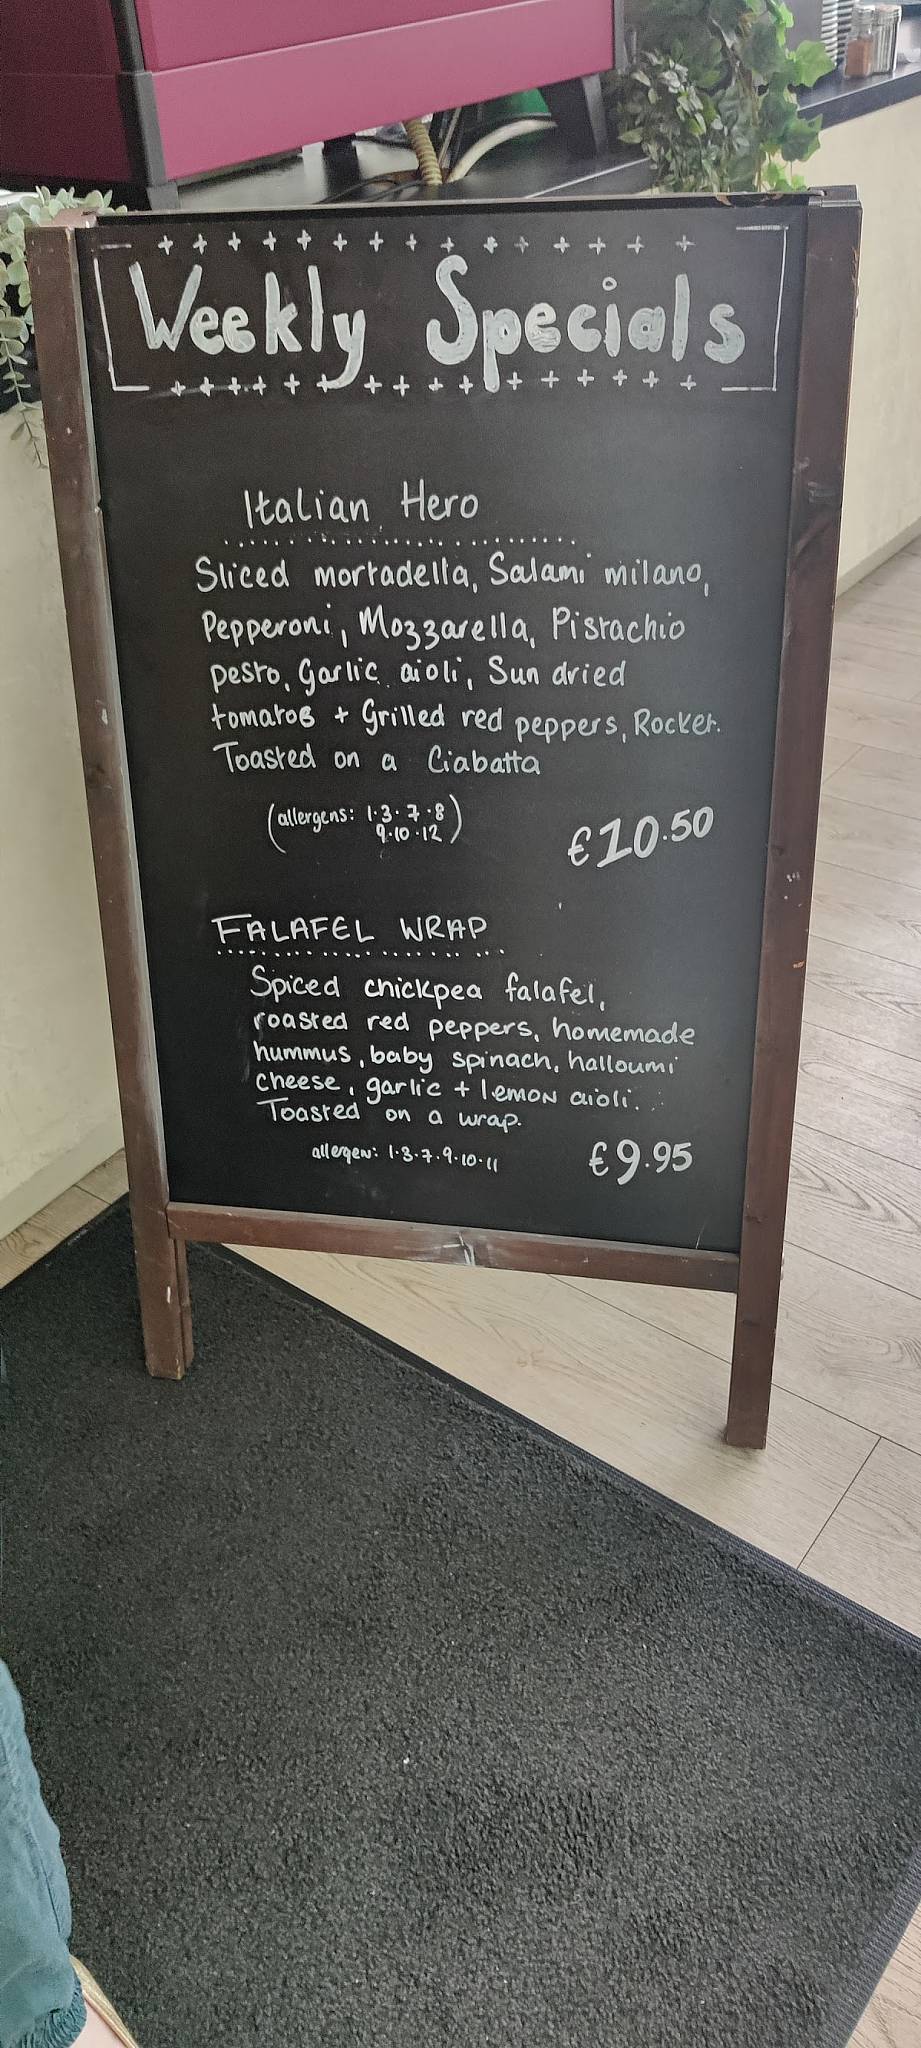 Weekly Specials
Italian Hero
Sliced mortadella, Salami milano,
Pepperoni, Mozzarella, Pistachio
pesto, Garlic aioli, Sun dried
tomatos + Grilled red peppers, Rocket.
Toasted on a Ciabatta
(allergens: 1·3·7·8
9·10·12)
€10.50
FALAFEL WRAP
Spiced chickpea falafel,
roasted red peppers, homemade
hummus, baby spinach, halloumi
cheese, garlic + lemon aioli.
Toasted on a wrap.
allergen: 1·3·7·9·10·11
€9.95